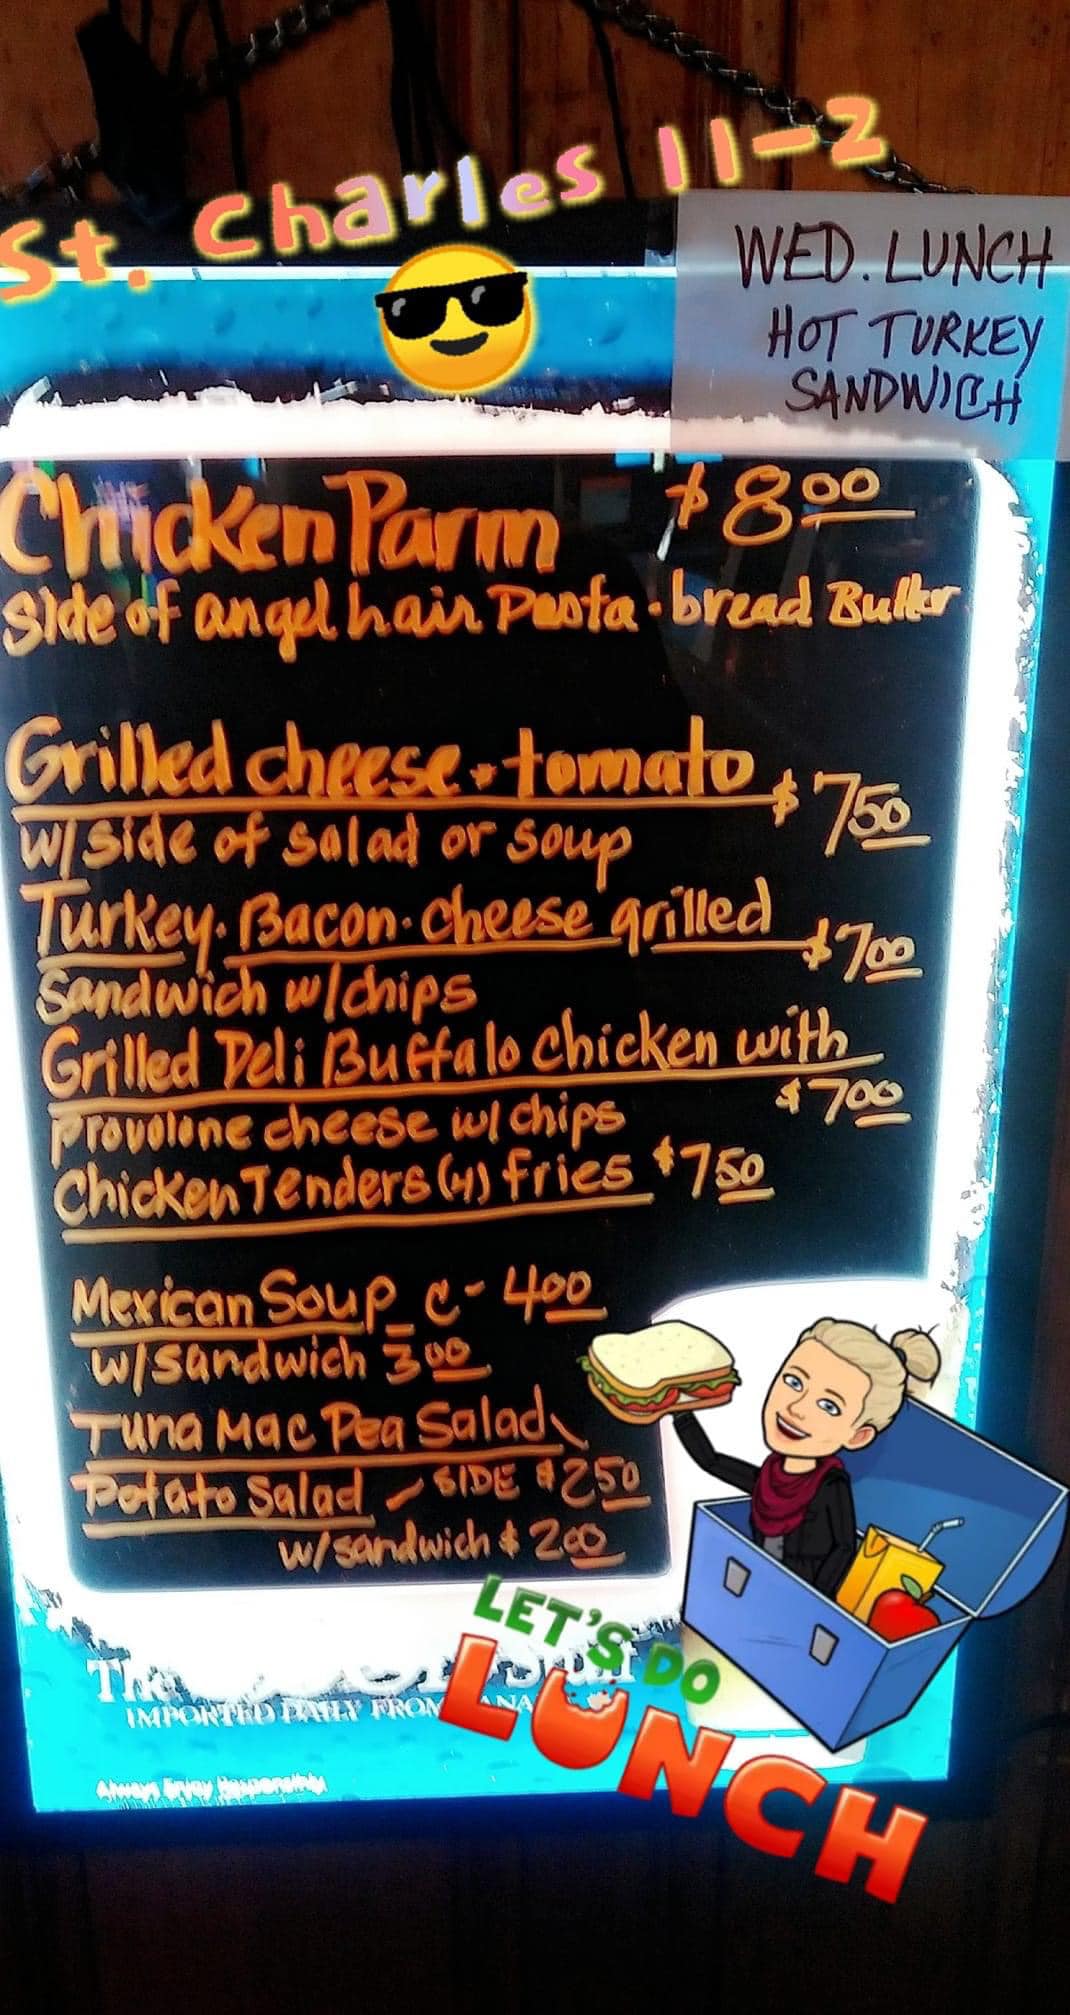 St. Charles 11-2
WED. LUNCH
HOT TURKEY
SANDWICH
Chicken Parm $8.00
side of angel hair Pasta · bread Butter
Grilled cheese · tomato $7.50
w/side of salad or soup
Turkey · Bacon · cheese grilled $7.00
Sandwich w/chips
Grilled Deli Buffalo chicken with
provolone cheese w/ chips $7.00
Chicken Tenders (4) fries $7.50
Mexican Soup c - 4.00
w/sandwich 3.00
Tuna Mac Pea Salad
Potato Salad - SIDE $2.50
w/sandwich $2.00
LET'S DO
LUNCH
The
IMPORTED DAILY FROM
Always Enjoy Responsibly